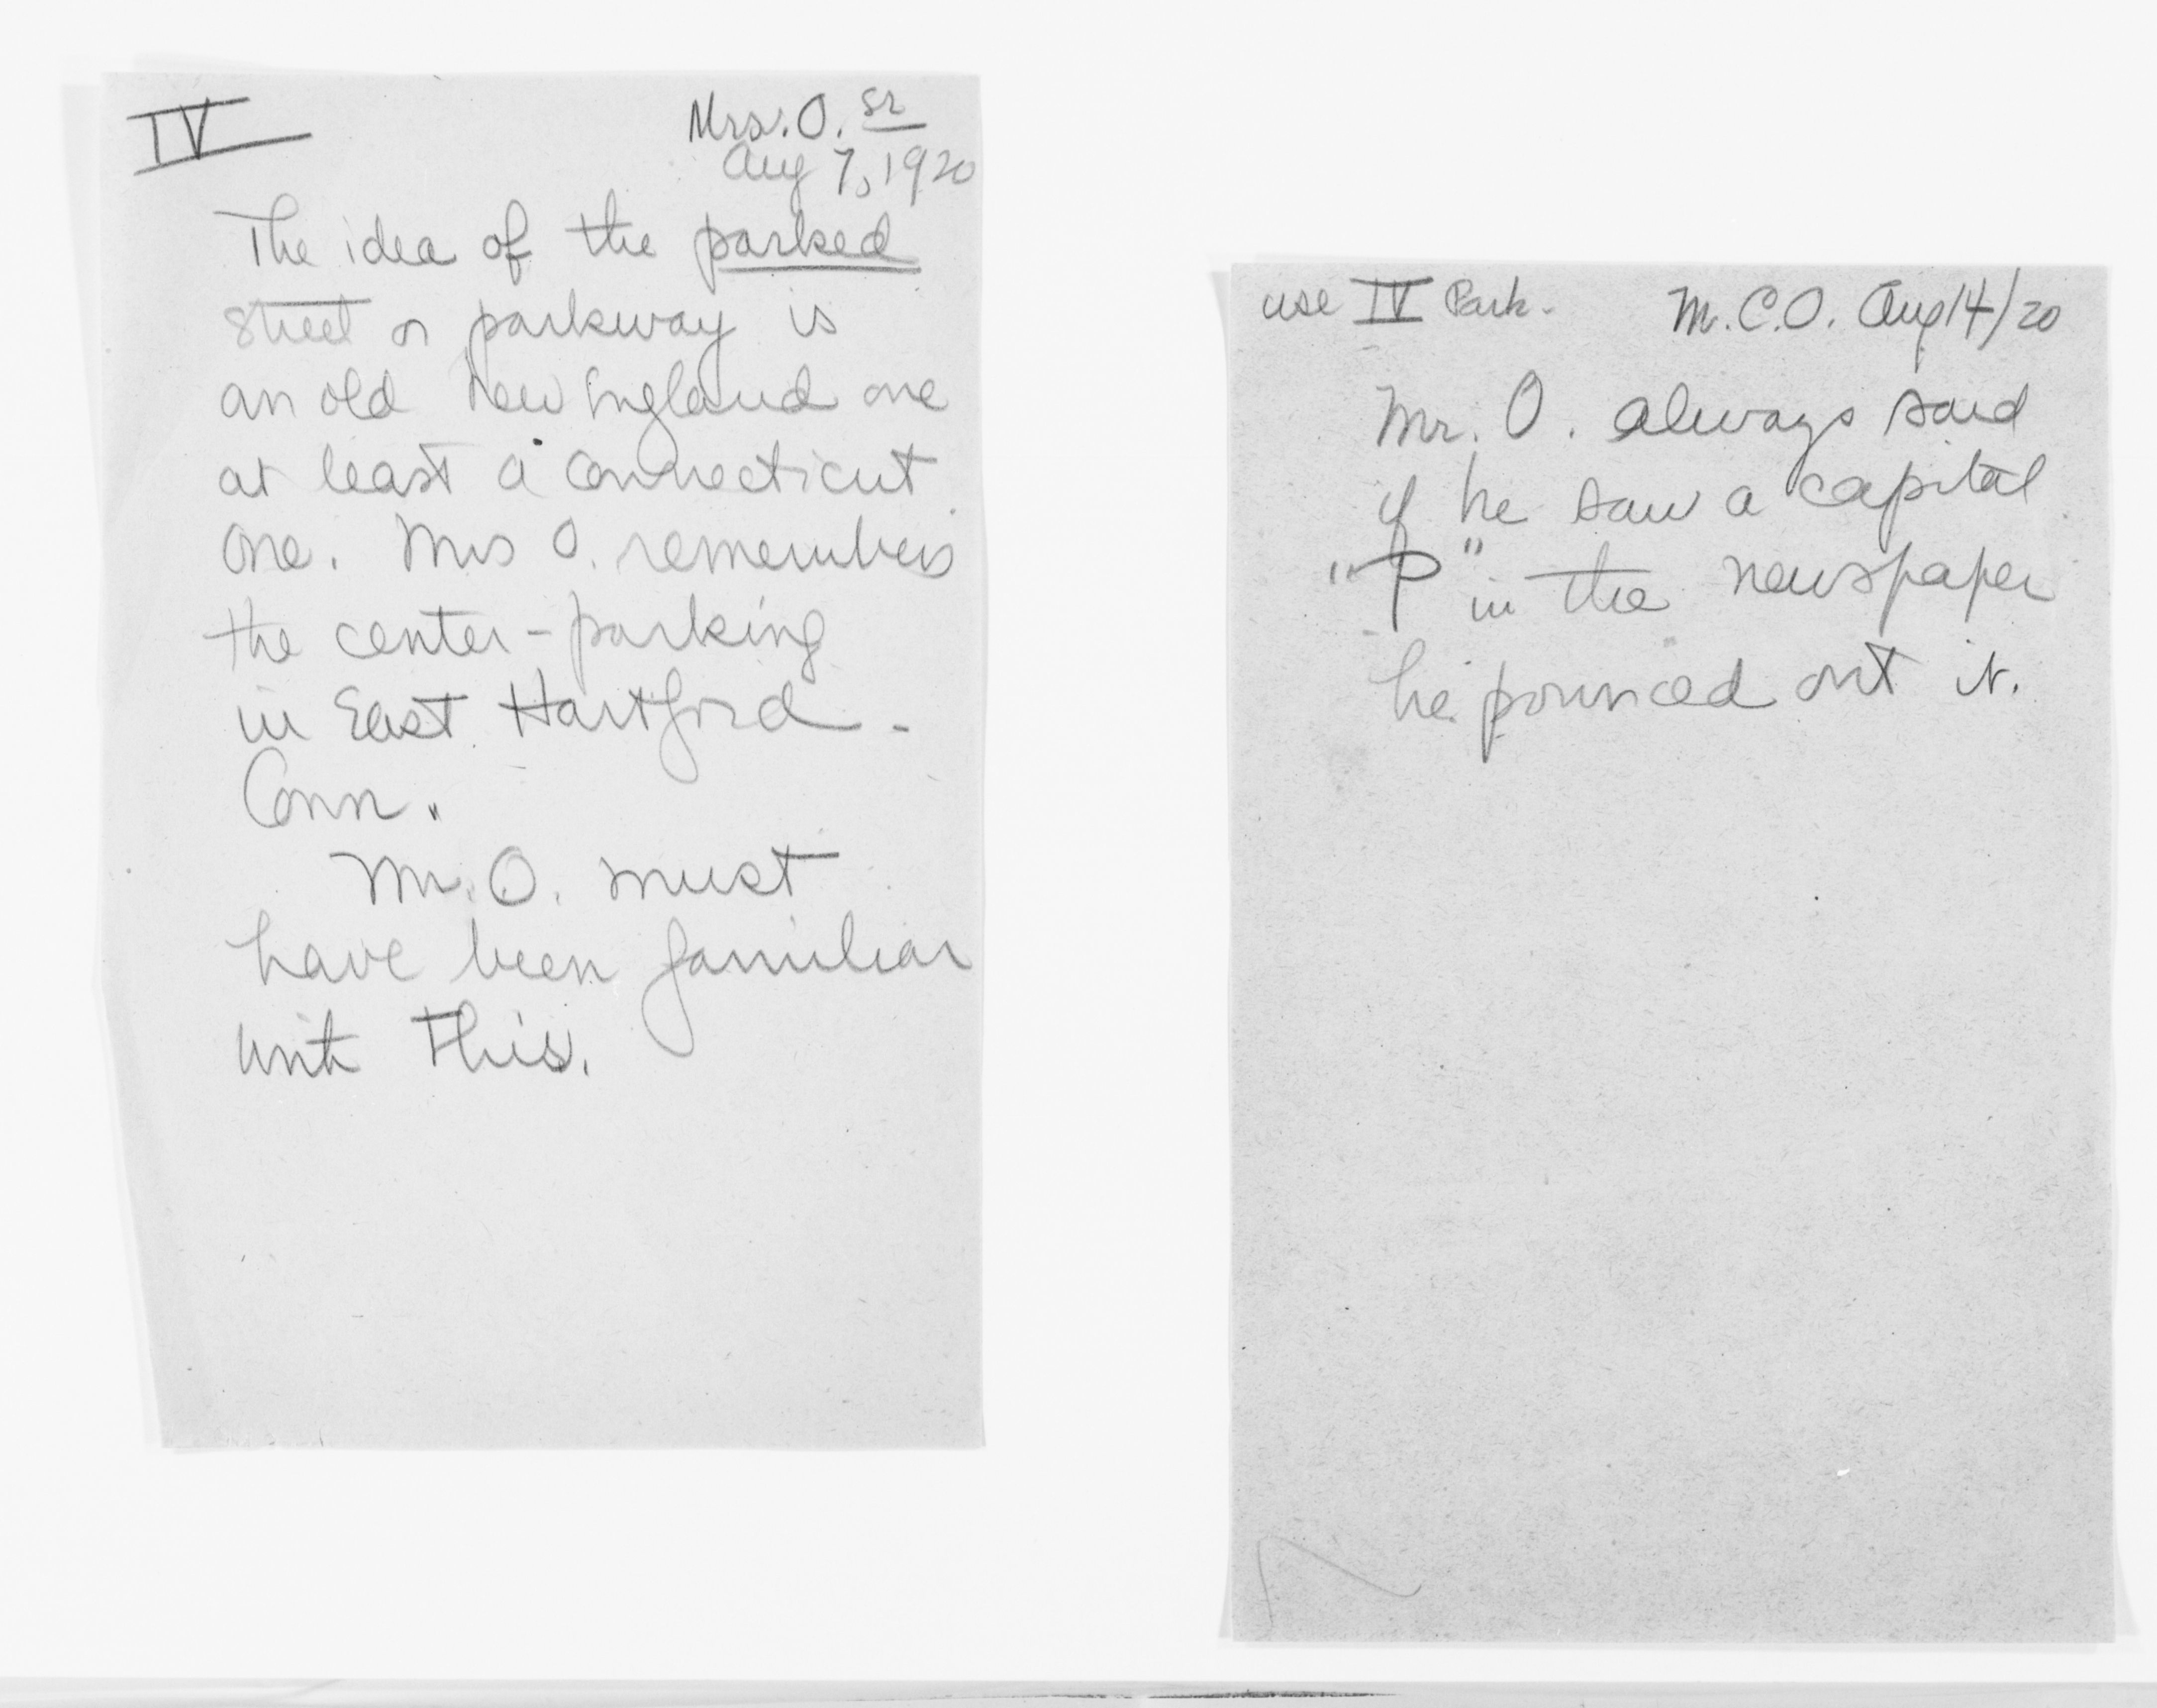 IV
Mrs. O. Sr
Aug 7, 1920
The idea of the parked
street or parkway is
an old New England one
at least a Connecticut
one. Mrs O. remembers
the center-parking
in East Hartford -
Conn.
Mr. O. must
have been familiar
with this.
use IV Park. M.C.O. Aug 14/20
Mr. O. always said
if he saw a capital
"P" in the newspaper
he pounced ont it.